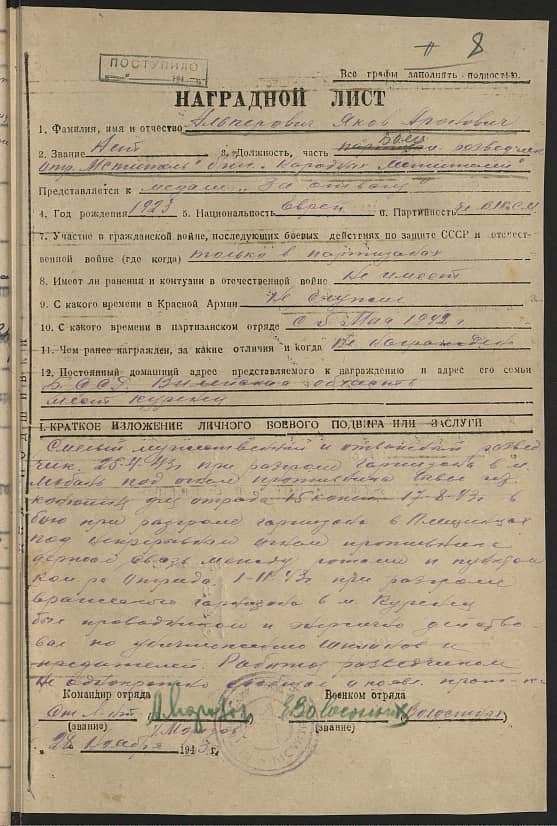 8
ПОСТУПИЛО
194
Все графы заполнять полностью.
НАГРАДНОЙ ЛИСТ
1. Фамилия, имя и отчество Альперович Яков Аронович
2. Звание Нет 3. Должность, часть разведчик
отр. "Мститель" "Народные Мстители"
Представляется к медали "За отвагу"
4. Год рождения 1923 5. Национальность Еврей 6. Партийность чл. ВЛКСМ
7. Участие в гражданской войне, последующих боевых действиях по защите СССР и отечест-
венной войне (где когда) только в партизанах
8. Имеет ли ранения и контузии в отечественной войне Не имеет
9. С какого времени в Красной Армии Не служил
10. С какого времени в партизанском отряде С 5 Мая 1942 г
11. Чем ранее награжден, за какие отличия и когда Не награжден
12. Постоянный домашний адрес представляемого к награждению и адрес его семьи
БССР Вилейская область
мест Куренец
I. КРАТКОЕ ИЗЛОЖЕНИЕ ЛИЧНОГО БОЕВОГО ПОДВИГА ИЛИ ЗАСЛУГИ
Смелый мужественный и отважный развед
чик. при разгроме гарнизона в м.
под огнем противника вывел из
для отряда 15 коней 17-8-43г в
бою при разгроме гарнизона в Плещеницах
под огнем противника
держал связь между ротами и
отряда 1-11-43г при разгроме
вражеского гарнизона в м. Куренец
был проводником и энергично действо-
вал по уничтожению шпионов и
предателей. Работая разведчиком
Не однократно
Командир отряда Военком отряда
Ст. Лейт Морозов Волостных
(звание) /Морозов (звание)
28 Ноября 1943 г.